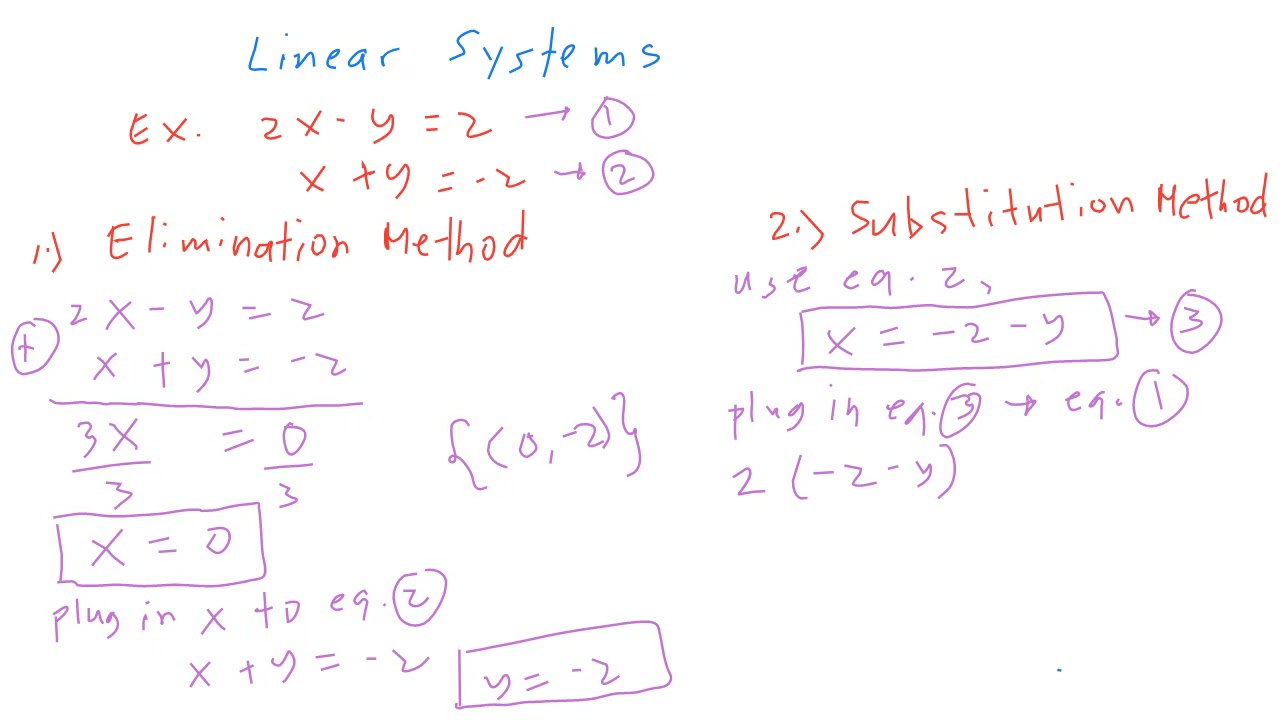 Linear Systems
Ex. 2x - y = 2 → ①
x + y = -2 → ②
1.) Elimination Method
2x - y = 2
⊕
x + y = -2
3x = 0
3 3
x = 0
plug in x to eq. ②
x + y = -2
y = -2
{(0, -2)}
2.) Substitution Method
use eq. 2,
x = -2 - y → ③
plug in eq. ③ → eq. ①
2 (-2 - y)